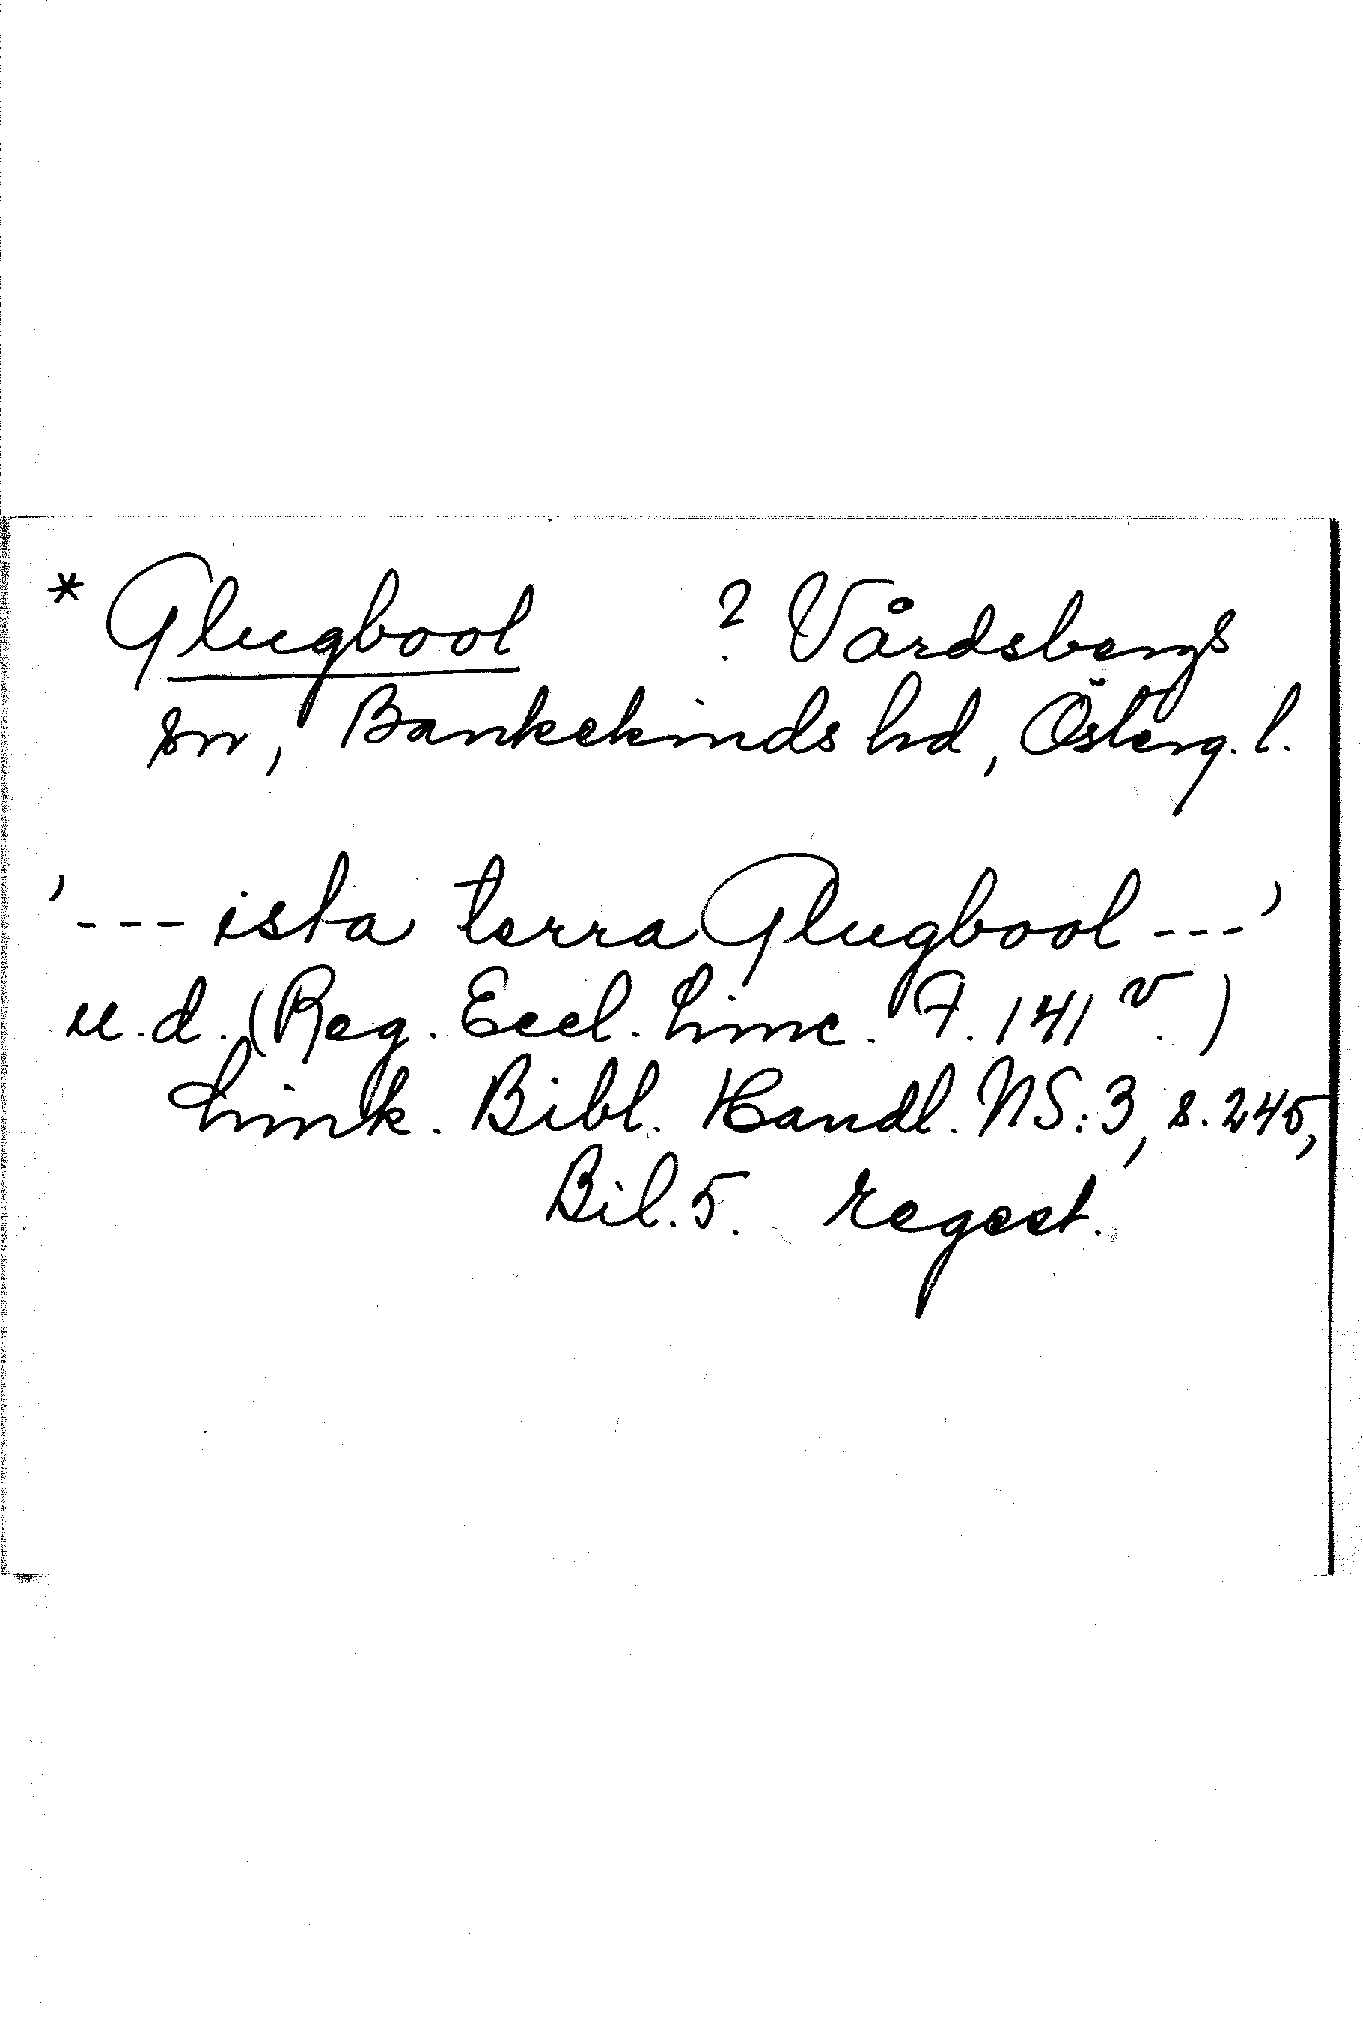 * Glugbool ? Vårdsbergs
sn, Bankekinds hd, Österg. l.
'--- ista terra Glugbool ---'
u.d. (Reg. Eccl. Linc. F. 141 v.)
Link. Bibl. Handl. NS:3, s. 245,
Bil. 5. regest.